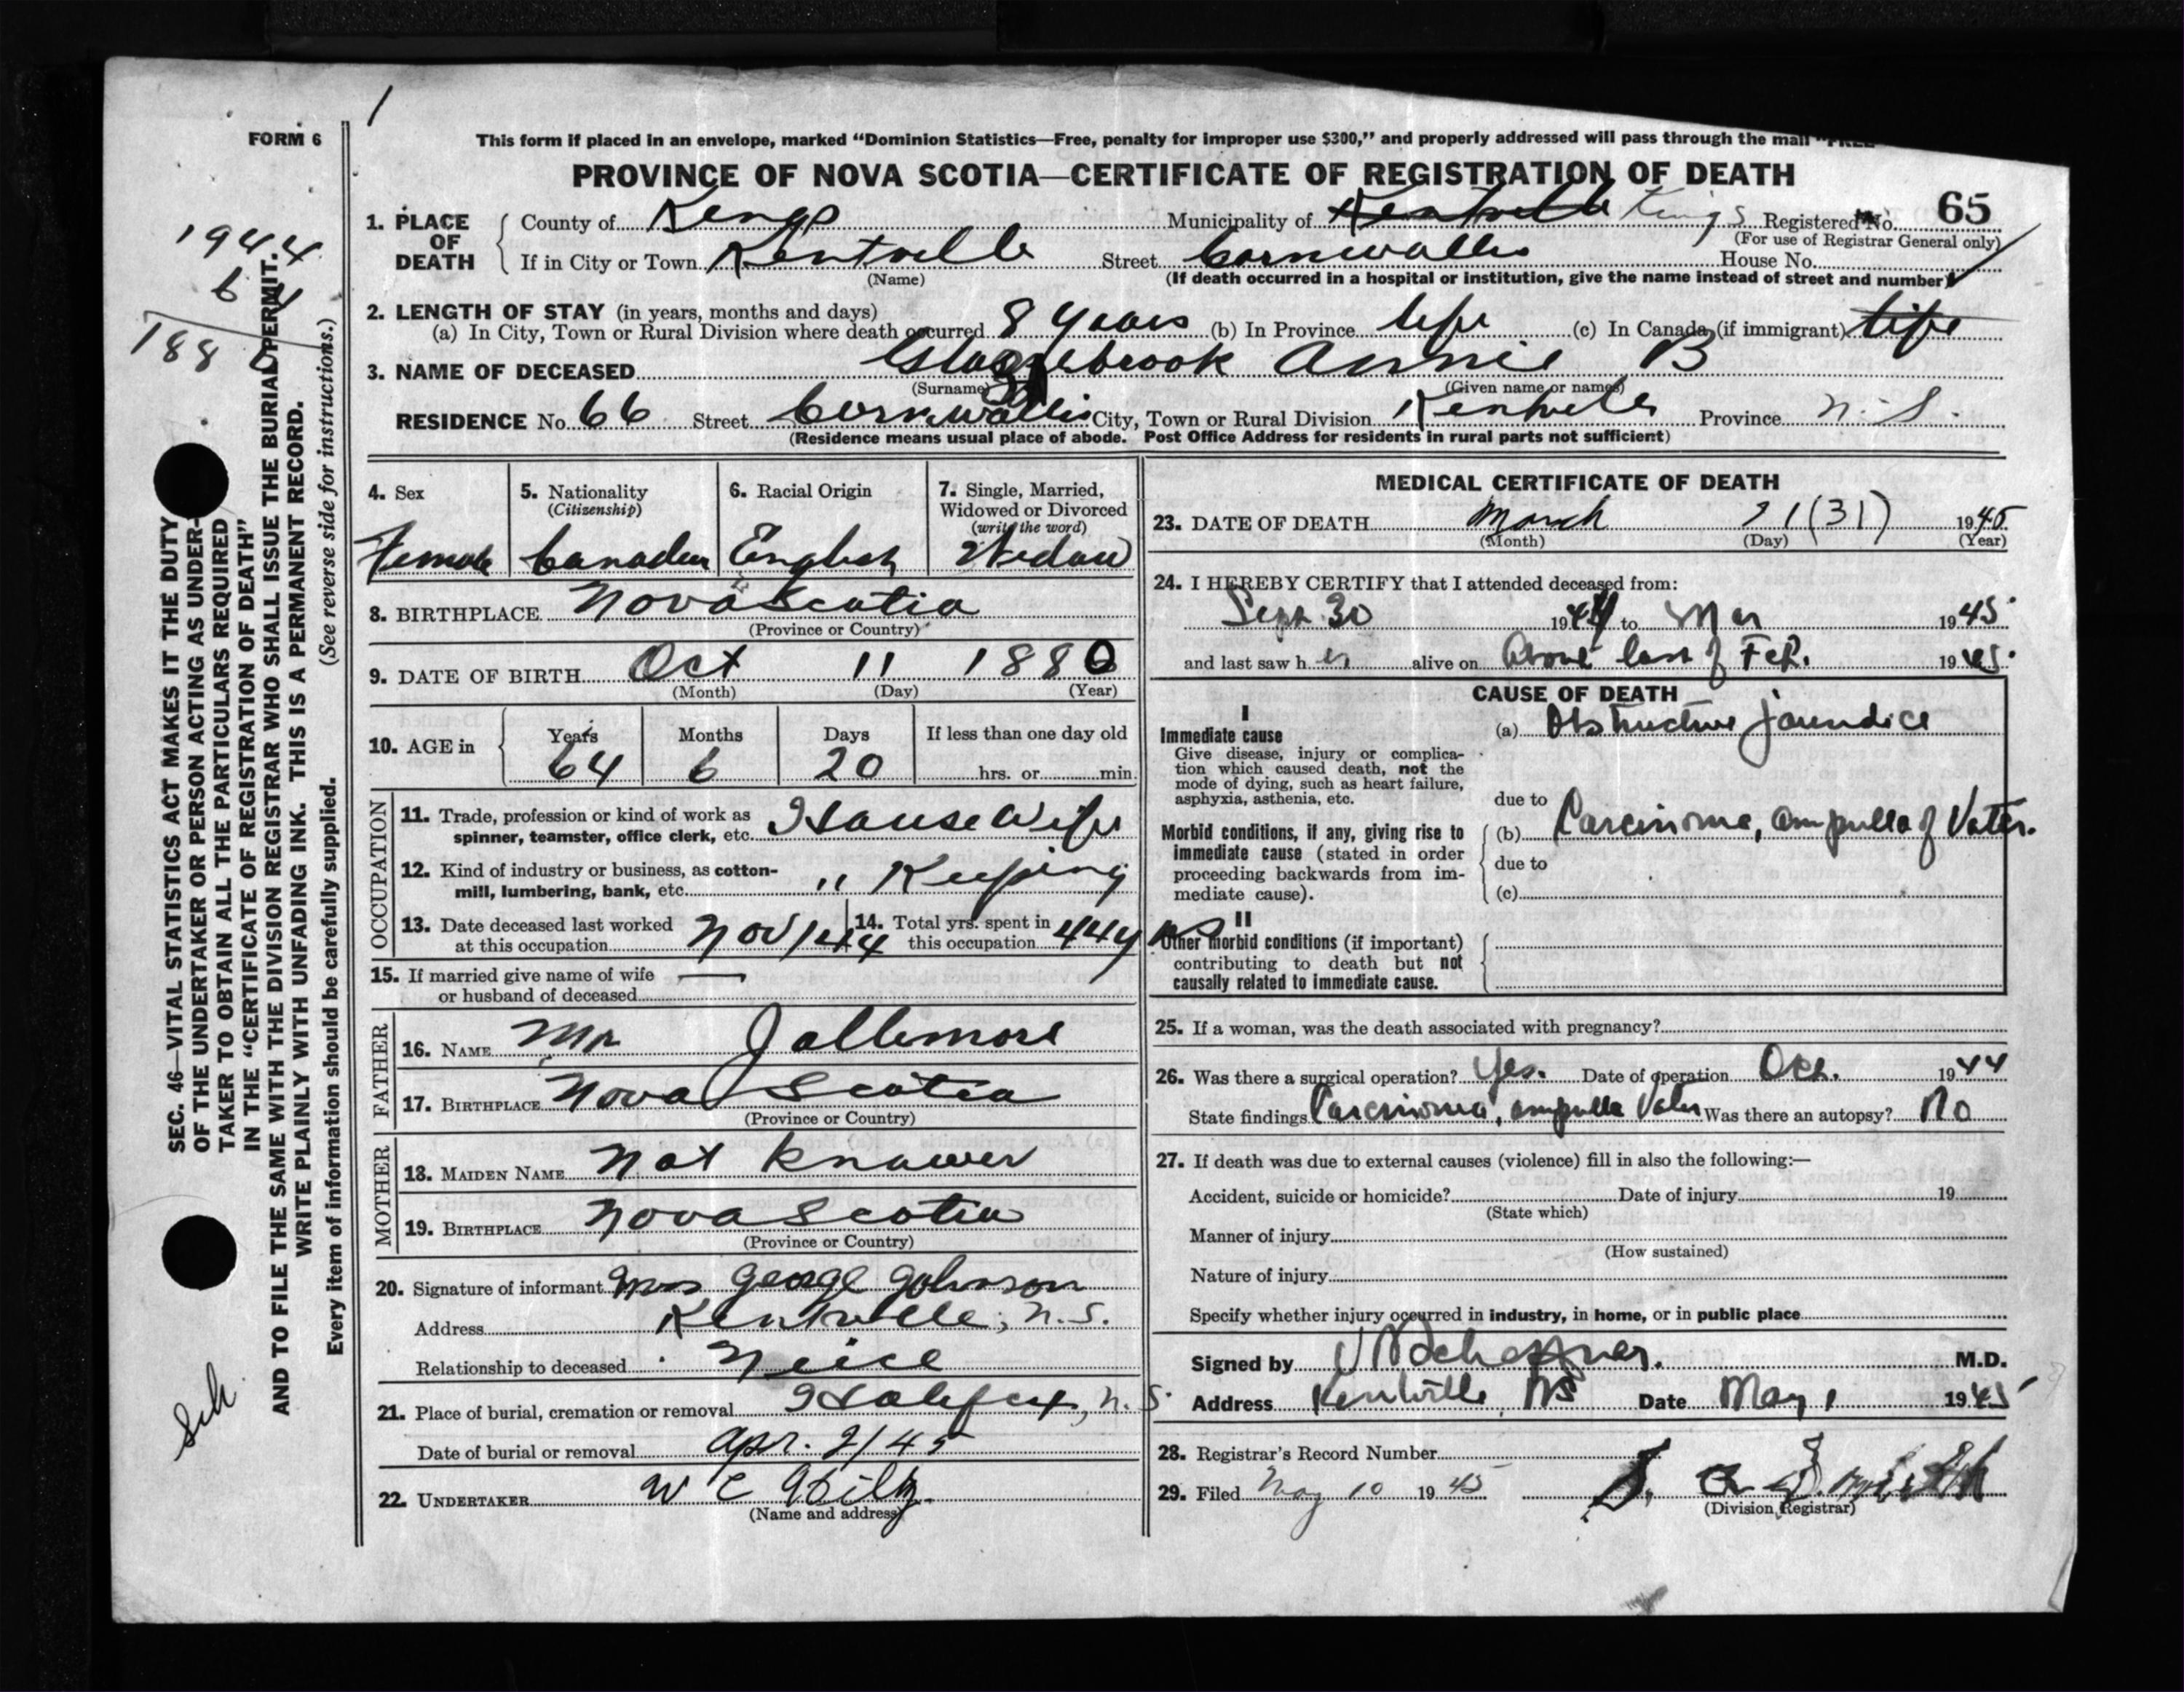 FORM 6
This form if placed in an envelope, marked “Dominion Statistics—Free, penalty for improper use $300,” and properly addressed will pass through the mail “FREE
PROVINCE OF NOVA SCOTIA—CERTIFICATE OF REGISTRATION OF DEATH
1944
64
188
1. PLACE OF DEATH County of Kings Municipality of Kentville Kings Registered No. 65
(For use of Registrar General only)
If in City or Town Kentville Street Cornwallis House No.
(Name) (If death occurred in a hospital or institution, give the name instead of street and number)
2. LENGTH OF STAY (in years, months and days)
(a) In City, Town or Rural Division where death occurred 8 years (b) In Province life (c) In Canada (if immigrant) life
3. NAME OF DECEASED Annie B
(Surname) (Given name or names)
RESIDENCE No. 66 Street Cornwallis City, Town or Rural Division Kentville Province N.S.
(Residence means usual place of abode. Post Office Address for residents in rural parts not sufficient)
4. Sex Female
5. Nationality (Citizenship) Canadian
6. Racial Origin English
7. Single, Married, Widowed or Divorced (write the word) Widow
8. BIRTHPLACE Nova Scotia
(Province or Country)
9. DATE OF BIRTH Oct 11 1880
(Month) (Day) (Year)
10. AGE in Years 64 Months 6 Days 20 If less than one day old hrs. or min.
OCCUPATION
11. Trade, profession or kind of work as
spinner, teamster, office clerk, etc. House Wife
12. Kind of industry or business, as cotton-
mill, lumbering, bank, etc. " Keeping
13. Date deceased last worked
at this occupation Nov/44
14. Total yrs. spent in
this occupation 44 yrs
15. If married give name of wife
or husband of deceased —
FATHER
16. NAME Mr Jollimore
17. BIRTHPLACE Nova Scotia
(Province or Country)
MOTHER
18. MAIDEN NAME Not Known
19. BIRTHPLACE Nova Scotia
(Province or Country)
20. Signature of informant Mrs George Johnson
Address Kentville, N.S.
Relationship to deceased Neice
21. Place of burial, cremation or removal Halifax, N.S.
Date of burial or removal Apr. 2/45
22. UNDERTAKER W C
(Name and address)
MEDICAL CERTIFICATE OF DEATH
23. DATE OF DEATH March 21 (31) 1945
(Month) (Day) (Year)
24. I HEREBY CERTIFY that I attended deceased from:
Sept 30 1944 to Mar 1945
and last saw her alive on About last of Feb. 1945.
CAUSE OF DEATH
I
Immediate cause
Give disease, injury or complica-
tion which caused death, not the
mode of dying, such as heart failure,
asphyxia, asthenia, etc.
(a) Obstructive jaundice
due to
Morbid conditions, if any, giving rise to
immediate cause (stated in order
proceeding backwards from im-
mediate cause).
(b) Carcinoma, ampulla of Vater.
due to
(c)
II
Other morbid conditions (if important)
contributing to death but not
causally related to immediate cause.
25. If a woman, was the death associated with pregnancy?
26. Was there a surgical operation? Yes. Date of operation Oct. 1944
State findings Carcinoma, ampulla Vater Was there an autopsy? No
27. If death was due to external causes (violence) fill in also the following:—
Accident, suicide or homicide? Date of injury 19
(State which)
Manner of injury
(How sustained)
Nature of injury
Specify whether injury occurred in industry, in home, or in public place
Signed by M.D.
Address Kentville, NS Date May 1 1945
28. Registrar's Record Number
29. Filed May 10 1945
(Division Registrar)
SEC. 46—VITAL STATISTICS ACT MAKES IT THE DUTY
OF THE UNDERTAKER OR PERSON ACTING AS UNDER-
TAKER TO OBTAIN ALL THE PARTICULARS REQUIRED
IN THE “CERTIFICATE OF REGISTRATION OF DEATH”
AND TO FILE THE SAME WITH THE DIVISION REGISTRAR WHO SHALL ISSUE THE BURIAL PERMIT.
WRITE PLAINLY WITH UNFADING INK. THIS IS A PERMANENT RECORD.
Every item of information should be carefully supplied. (See reverse side for instructions.)